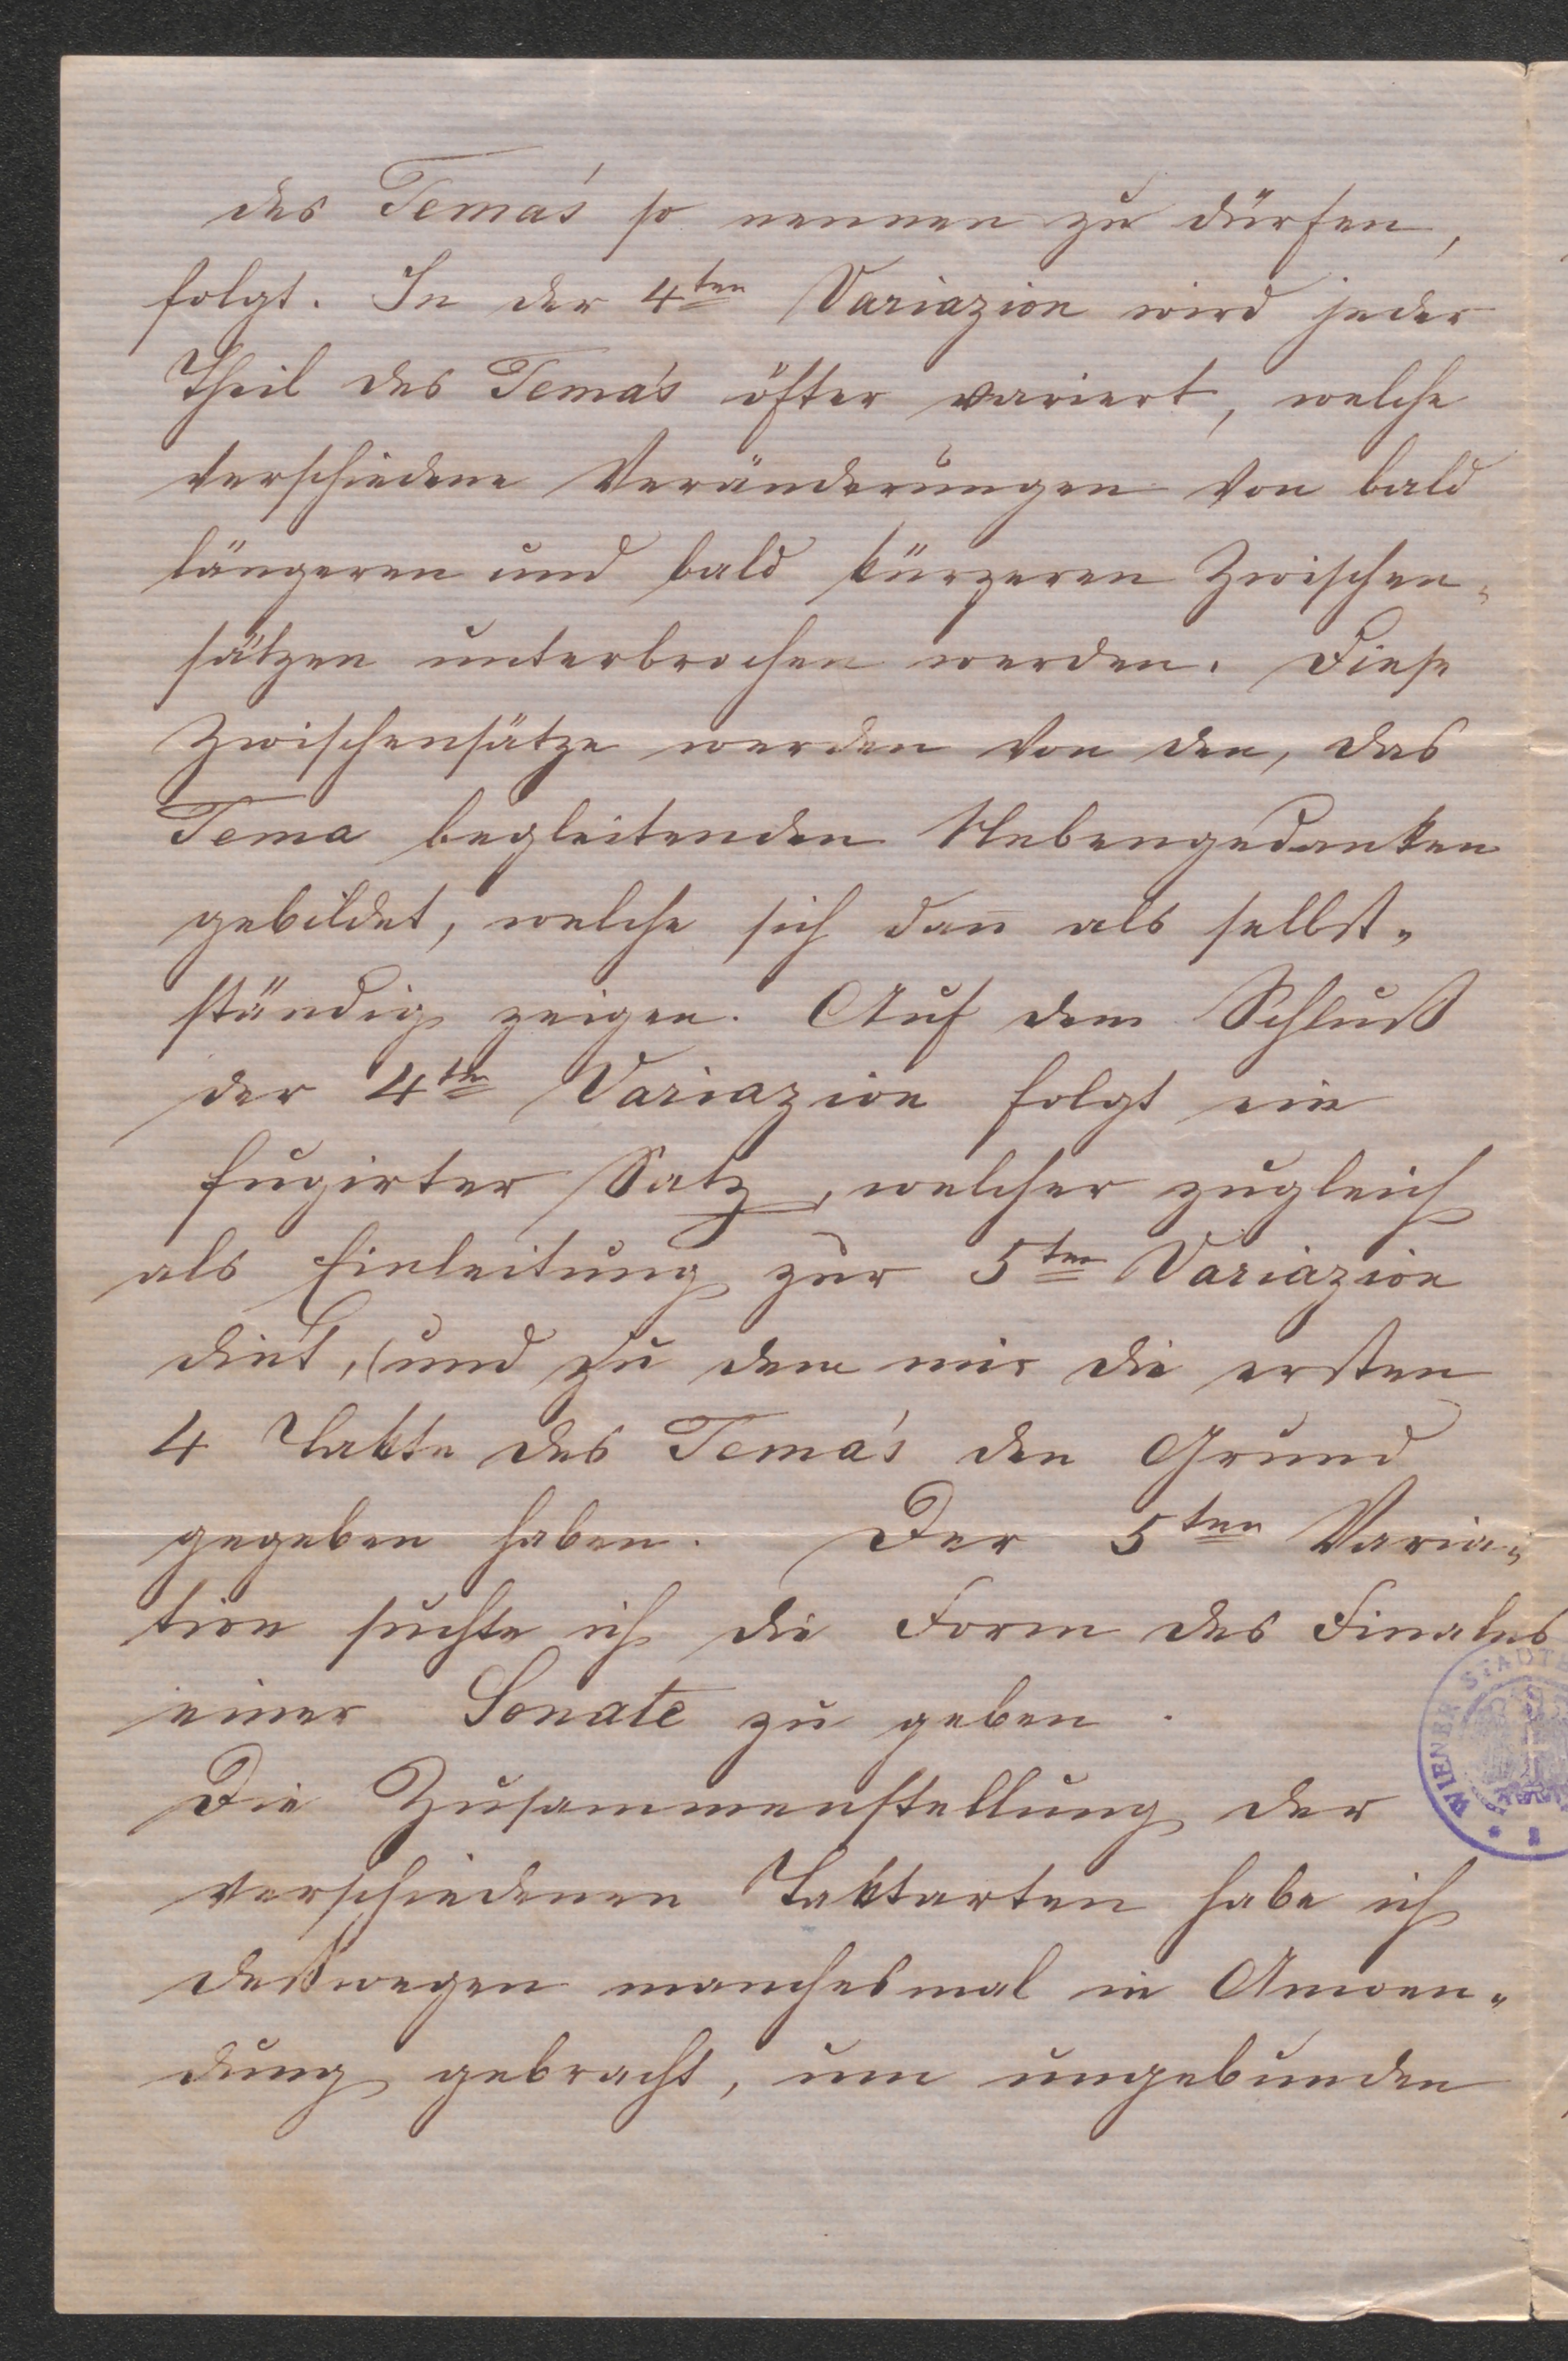 des Tema's so nennen zu dürfen,
folgt. In der 4ten Variazion wird jeder
Theil des Tema's öfter variert, welche
verschiedene Veränderungen von bald
längeren und bald kürzeren Zwischen„
sätzen unterbrochen werden. Diese
Zwischensätze werden von den, das
Tema begleitenden Nebengedanken
gebildet, welche sich dan̄ als selbst„
ständig zeigen. Auf dem Schluß
der 4ten Variazion folgt ein
fugirter Satz, welcher zugleich
als Einleitung zur 5ten Variazion
dient, (und zu dem mir die ersten
4 Takte des Tema's den Grund
gegeben haben. Der 5ten Varia„
tion suchte ich die Form des Finales
einer Sonate zu geben.
Die Zusammenstellung der
verschiedenen Taktarten habe ich
deßwegen manchesmal in Anwen„
dung gebracht, um ungebunden
WIENER STADT